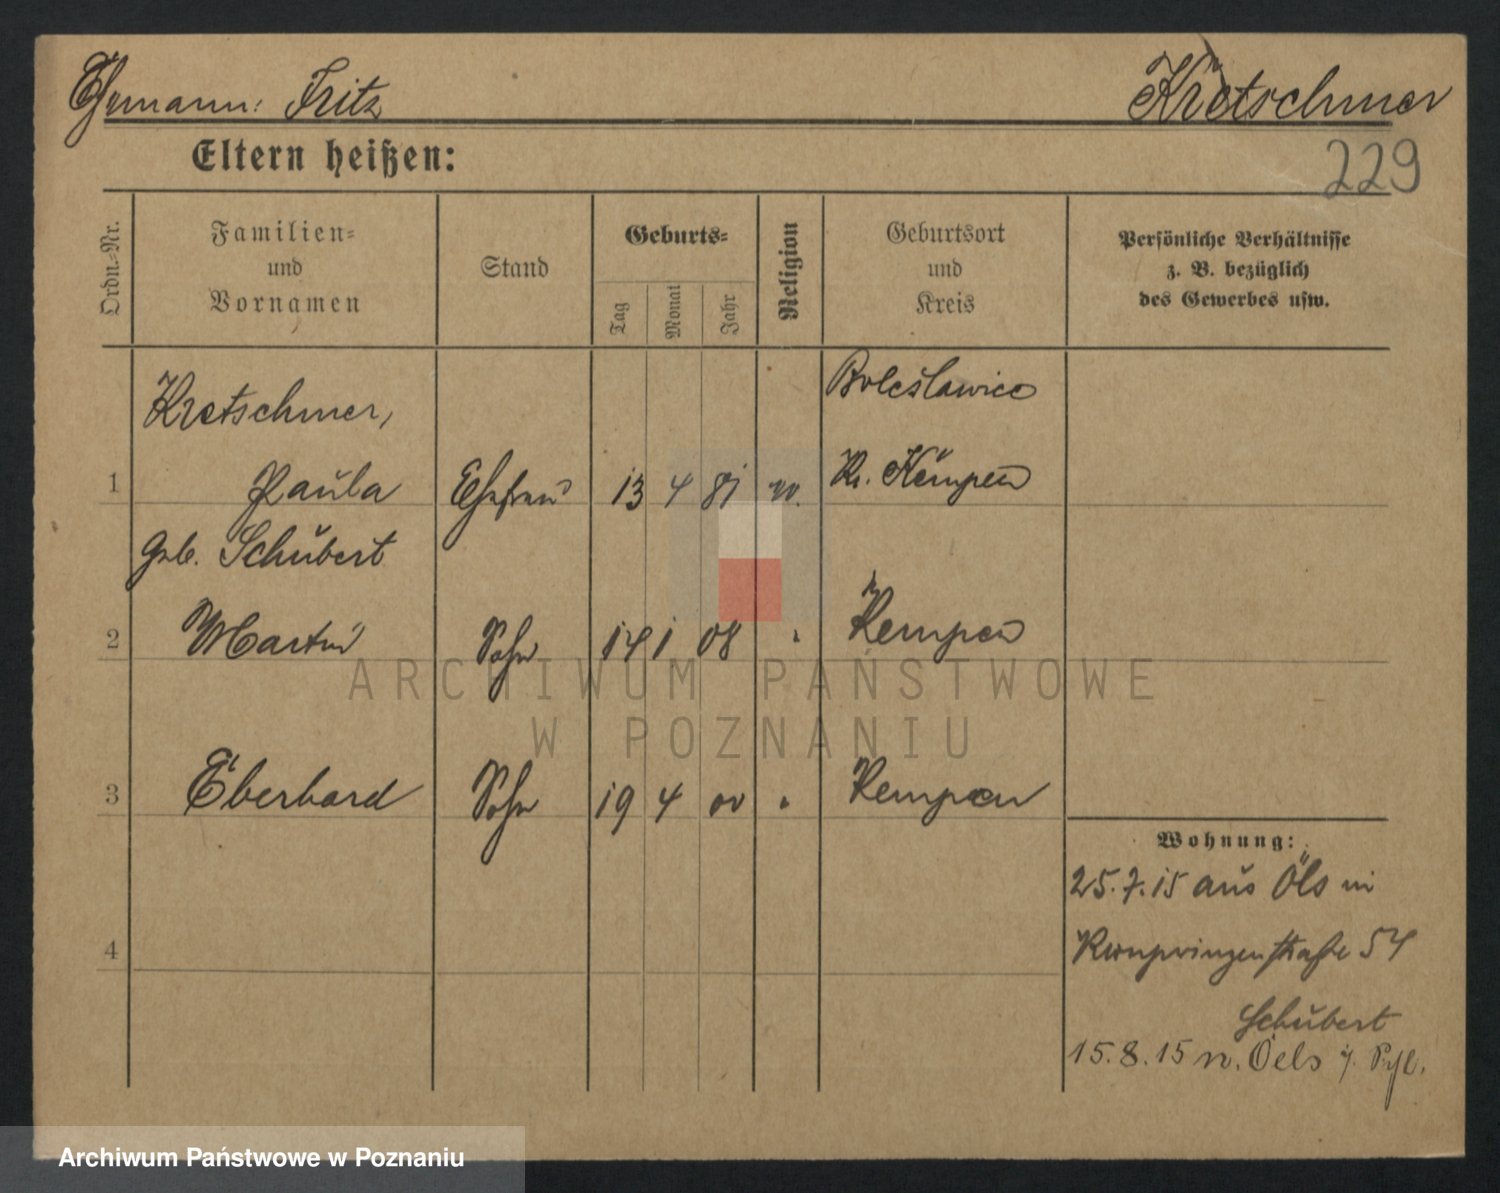 Ehemann: Fritz Kretschmer
Eltern heißen:
229
Ordn.-Nr.
Familien-
und
Vornamen
Stand
Geburts-
Tag
Monat
Jahr
Religion
Geburtsort
und
Kreis
Persönliche Verhältnisse
z. B. bezüglich
des Gewerbes usw.
Kretschmer, Boleslawice
1 Paula Ehefrau 13 4 81 Kr. Kempen
geb. Schubert
2 Martin Sohn 14 1 08 " Kempen
3 Eberhard Sohn 19 4 " Kempen
4
Wohnung:
25.7.15 aus Öls in
Kronprinzenstraße 54
Schubert
15.8.15 n. Oels i. Schl.
ARCHIWUM PAŃSTWOWE
W POZNANIU
Archiwum Państwowe w Poznaniu